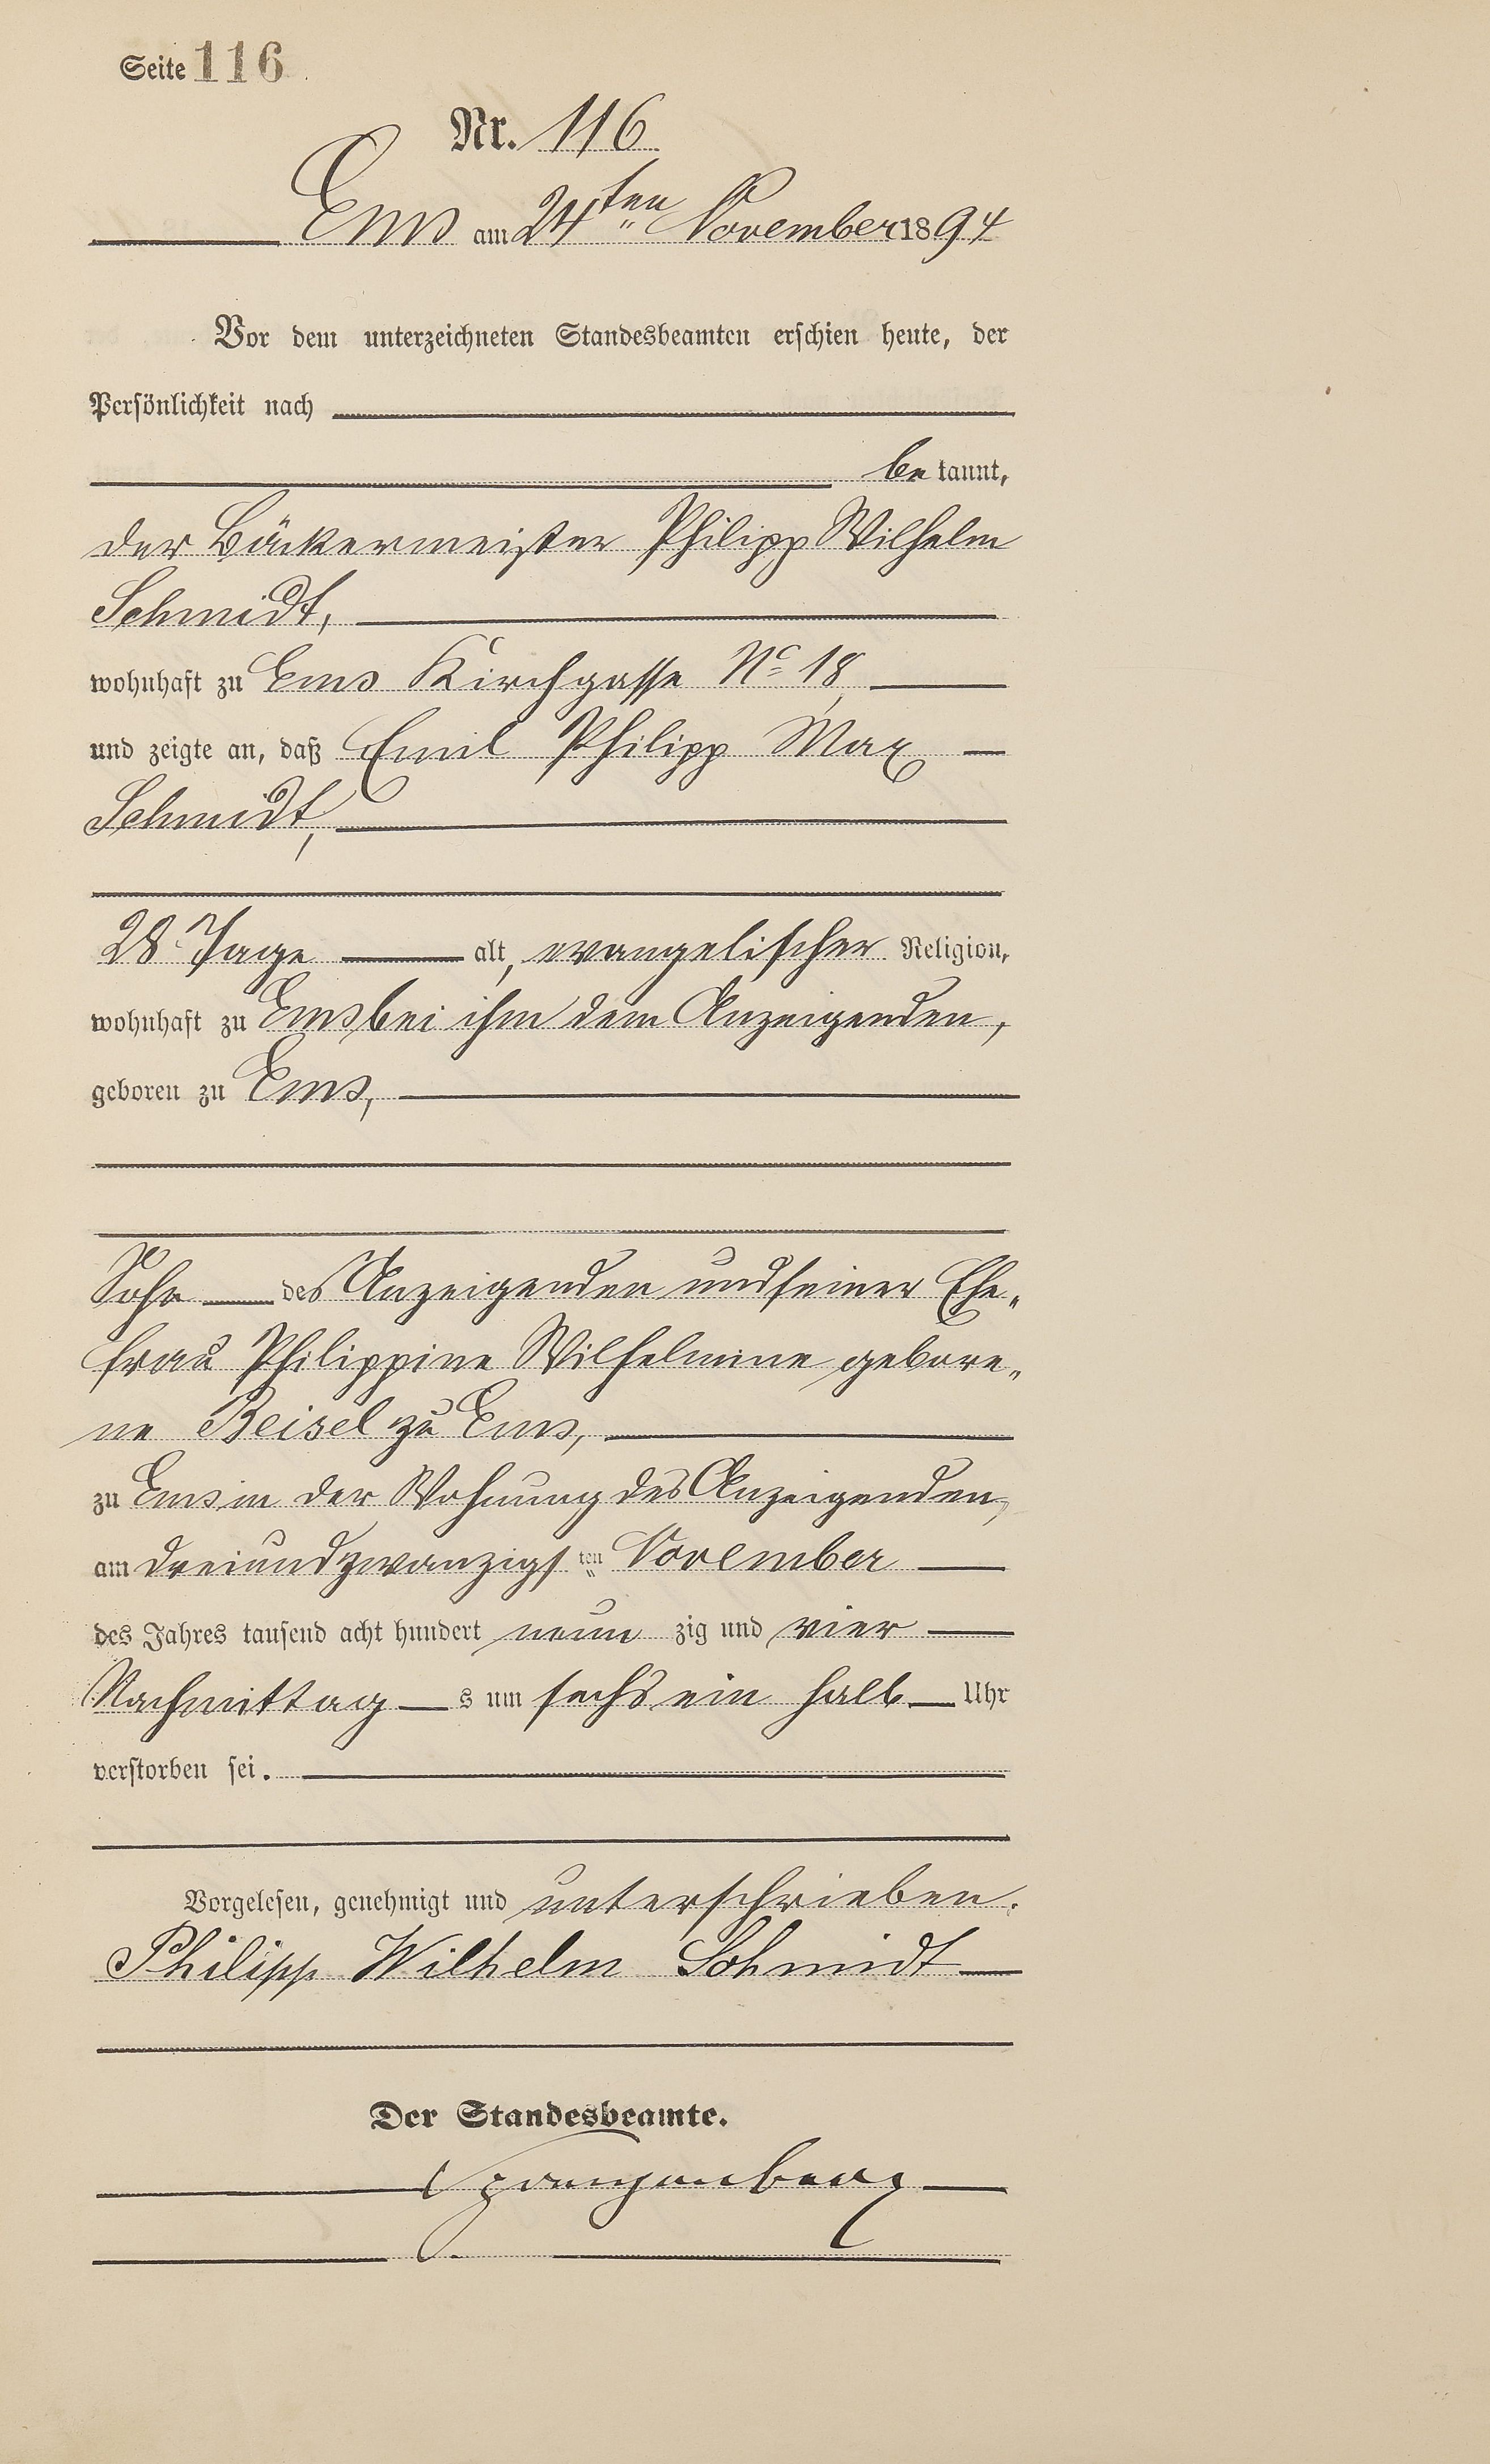 Seite 116
Nr. 116
Ems am 24ten November 1894
Vor dem unterzeichneten Standesbeamten erschien heute, der
Persönlichkeit nach
bekannt,
der Bäckermeister Philipp Wilhelm
Schmidt,
wohnhaft zu Ems Kirchgasse No 18,
und zeigte an, daß Emil Philipp Max
Schmidt,
28 Tage alt, evangelischer Religion,
wohnhaft zu Ems bei ihm dem Anzeigenden,
geboren zu Ems,
Sohn des Anzeigenden und seiner Ehe„
frau Philippine Wilhelmine gebore„
ne Beisel zu Ems,
zu Ems in der Wohnung des Anzeigenden,
am dreiundzwanzigsten November
des Jahres tausend acht hundert neunzig und vier
Nachmittags um sechs ein halb Uhr
verstorben sei.
Vorgelesen, genehmigt und unterschrieben.
Philipp Wilhelm Schmidt
Der Standesbeamte.
Spangenberg